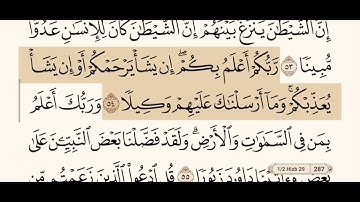 إِنَّ الشَّيْطَٰنَ يَنزَغُ بَيْنَهُمْ إِنَّ الشَّيْطَٰنَ كَانَ لِلْإِنسَٰنِ عَدُوًّا
مُّبِينًا ٥٣ رَّبُّكُمْ أَعْلَمُ بِكُمْ إِن يَشَأْ يَرْحَمْكُمْ أَوْ إِن يَشَأْ
يُعَذِّبْكُمْ وَمَا أَرْسَلْنَٰكَ عَلَيْهِمْ وَكِيلًا ٥٤ وَرَبُّكَ أَعْلَمُ
بِمَن فِي السَّمَٰوَٰتِ وَالْأَرْضِ وَلَقَدْ فَضَّلْنَا بَعْضَ النَّبِيِّـۧنَ عَلَىٰ
بَعْضٍ وَءَاتَيْنَا دَاوُۥدَ زَبُورًا ٥٥ قُلِ ادْعُوا الَّذِينَ زَعَمْتُم مِّن
1/2 Hizb 29
287